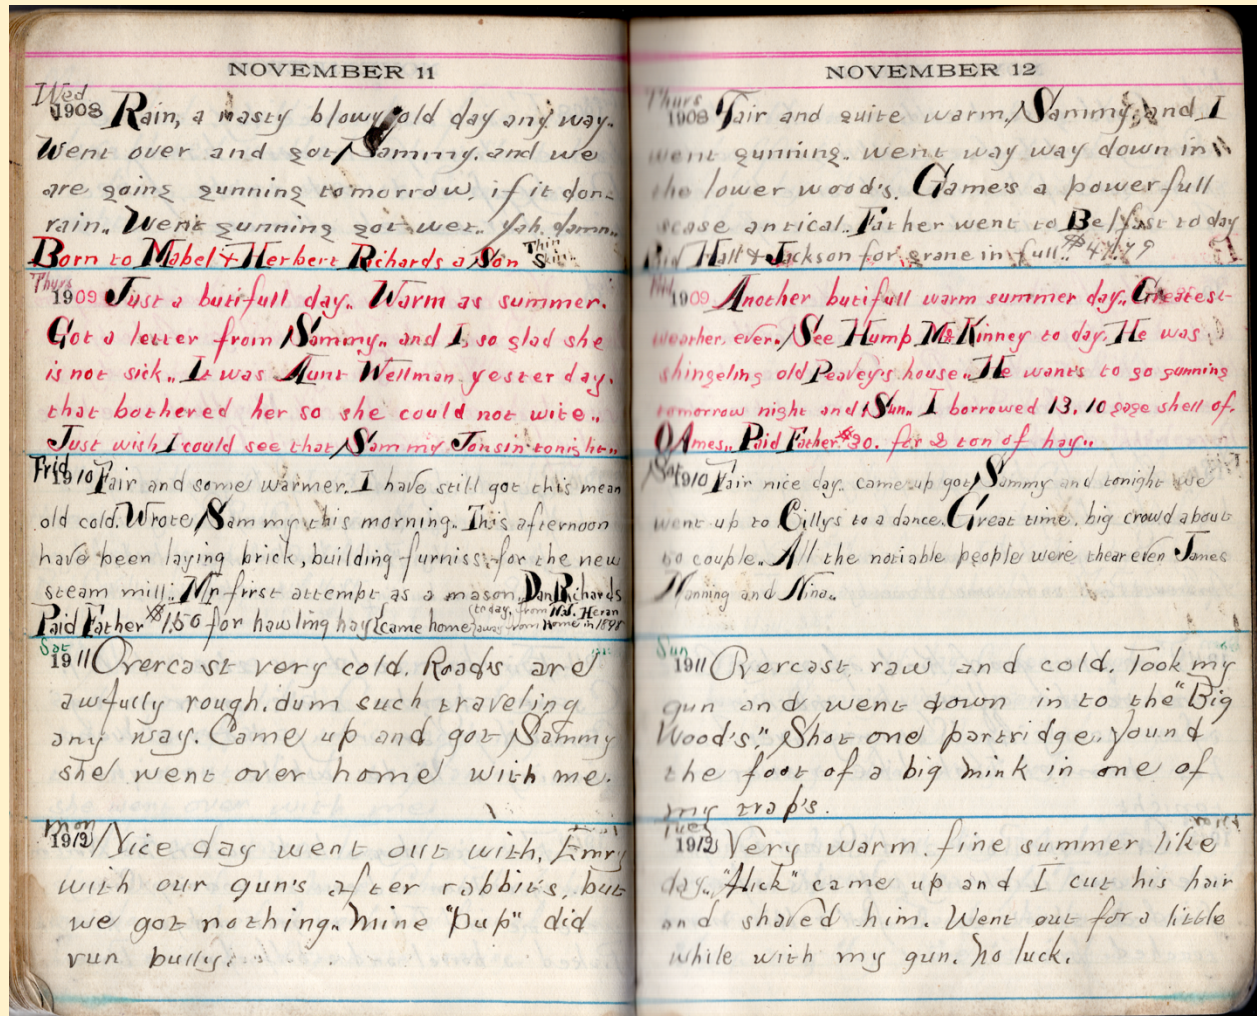 NOVEMBER 11
Wed
1908 Rain, a nasty blowy old day any way..
Went over and got Sammy. and we
are going gunning tomorrow, if it don-
rain.. Went gunning got wet.. Yah, damn..
Born to Mabel & Herbert Richards a Son Thin
Skin..
Thurs
1909 Just a butifull day.. Warm as summer.
Got a letter from Sammy.. and I, so glad she
is not sick.. It was Aunt Wellman yesterday.
that bothered her so she could not wite..
Just wish I could see that Sammy Jonsin tonight..
Frid
1910 Fair and some warmer. I have still got this mean
old cold. Wrote Sammy this morning.. This afternoon
have been laying brick, building furniss for the new
steam mill.. My frrst attempt as a mason. Dan Richards
Paid Father $1.50 for hawling hay {came home to day, from
away from Home in 1898
Sat
1911 Overcast very cold. Road's are
awfully rough. dum such traveling
any way. Came up and got Sammy
she went over home with me.
Mon
1912 Nice day went out with, Emry
with our gun's after rabbit's, but
we got nothing. mine "Pup" did
run bully.
NOVEMBER 12
Thurs
1908 Fair and quite warm. Sammy. and I
went gunning.. went way way down in
the lower wood's. Game's a powerfull
scase antical.. Father went to Belfast to day
Paid Hall & Jackson for grane in full.. $47.79
1909 Another butifull warm summer day.. Greatest-
weather, ever. See Hump McKinney to day. He was
shingeling old Peavey's house.. He want's to go gunning
tomorrow night and Sun.. I borrowed 13, 10 gage shell of.
O Ames.. Paid Father $30. for 2 ton of hay..
Sat
1910 Fair nice day.. came up got Sammy and tonight we
went up to Cillys to a dance. Great time. big crowd about
couple.. All the notiable people were thear even James
Manning and Nina..
Sun
1911 Overcast raw and cold. Took my
gun and went down in to the "Big
Wood's." Shot one partridge. Yound
the foot of a big mink in one of
my trap's.
Tues
1912 Very warm. fine summer like
day.. "Hick" came up and I cut his hair
and shaved him. Went out for a little
while with my gun. No luck.